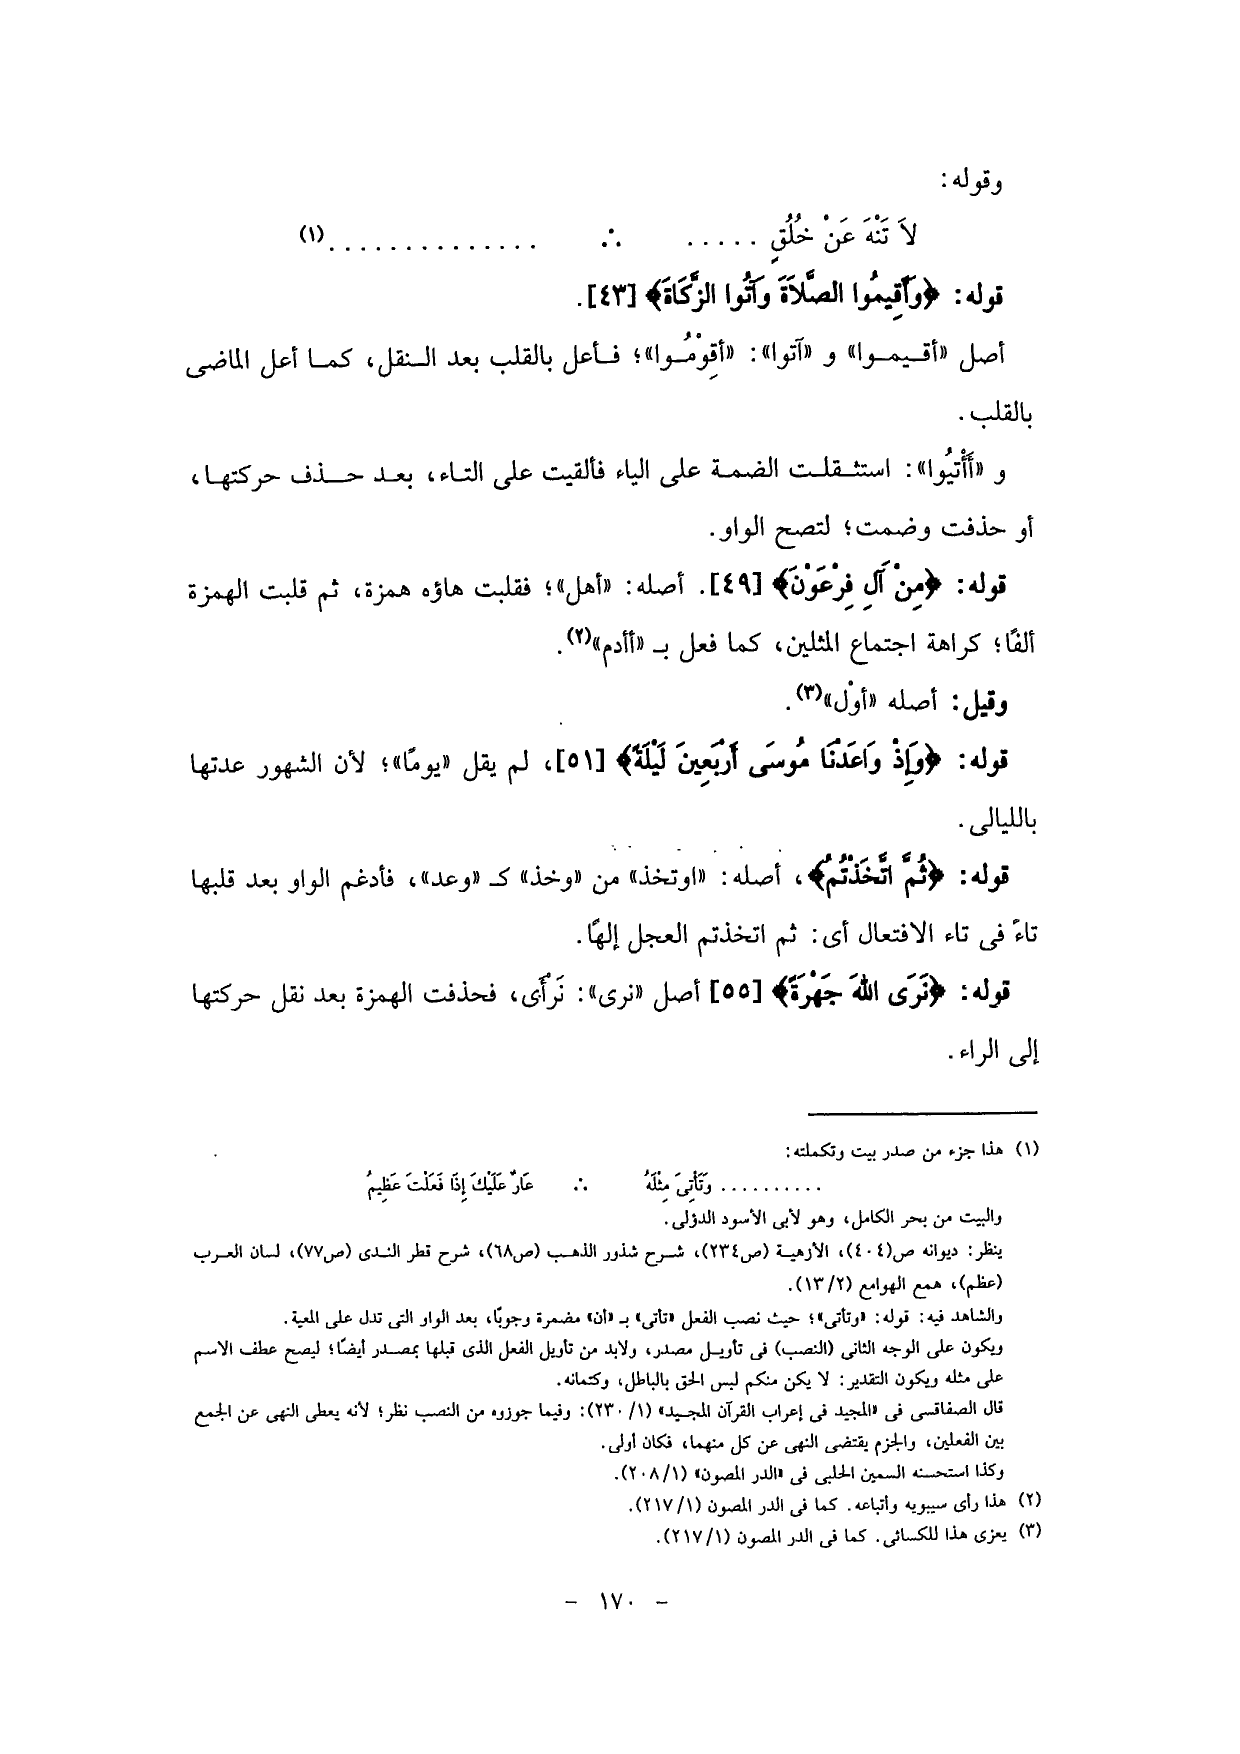 وقوله:
لاَ تَنْهَ عَنْ خُلُقٍ ..... ∴ ..............(١)
قوله: ﴿وَأَقِيمُوا الصَّلاَةَ وَآتُوا الزَّكَاةَ﴾ [٤٣].
أصل «أقيموا» و «آتوا»: «أَقْوِمُوا»؛ فأعل بالقلب بعد النقل، كما أعل الماضى
بالقلب.
و «أَأْتِيُوا»: استثقلت الضمة على الياء فألقيت على التاء، بعد حذف حركتها،
أو حذفت وضمت؛ لتصح الواو.
قوله: ﴿مِنْ آلِ فِرْعَوْنَ﴾ [٤٩]. أصله: «أهل»؛ فقلبت هاؤه همزة، ثم قلبت الهمزة
ألفًا؛ كراهة اجتماع المثلين، كما فعل بـ «أأدم»(٢).
وقيل: أصله «أوْل»(٣).
قوله: ﴿وَإِذْ وَاعَدْنَا مُوسَى أَرْبَعِينَ لَيْلَةً﴾ [٥١]، لم يقل «يومًا»؛ لأن الشهور عدتها
بالليالى.
قوله: ﴿ثُمَّ اتَّخَذْتُمُ﴾، أصله: «اوتخذ» من «وخذ» كـ «وعد»، فأدغم الواو بعد قلبها
تاءً فى تاء الافتعال أى: ثم اتخذتم العجل إلهًا.
قوله: ﴿نَرَى اللهَ جَهْرَةً﴾ [٥٥] أصل «نرى»: نَرْأَى، فحذفت الهمزة بعد نقل حركتها
إلى الراء.
(١) هذا جزء من صدر بيت وتكملته:
.......... وَتَأْتِىَ مِثْلَهُ ∴ عَارٌ عَلَيْكَ إِذَا فَعَلْتَ عَظِيمُ
والبيت من بحر الكامل، وهو لأبى الأسود الدؤلى.
ينظر: ديوانه ص(٤٠٤)، الأزهية (ص٢٣٤)، شرح شذور الذهب (ص٦٨)، شرح قطر الندى (ص٧٧)، لسان العرب
(عظم)، همع الهوامع (١٣/٢).
والشاهد فيه: قوله: «وتأتى»؛ حيث نصب الفعل «تأتى» بـ «أن» مضمرة وجوبًا، بعد الواو التى تدل على المعية.
ويكون على الوجه الثانى (النصب) فى تأويل مصدر، ولابد من تأويل الفعل الذى قبلها بمصدر أيضًا؛ ليصح عطف الاسم
على مثله ويكون التقدير: لا يكن منكم لبس الحق بالباطل، وكتمانه.
قال الصفاقسى فى «المجيد فى إعراب القرآن المجيد» (٢٣٠/١): وفيما جوزوه من النصب نظر؛ لأنه يعطى النهى عن الجمع
بين الفعلين، والجزم يقتضى النهى عن كل منهما، فكان أولى.
وكذا استحسنه السمين الحلبى فى «الدر المصون» (٢٠٨/١).
(٢) هذا رأى سيبويه وأتباعه. كما فى الدر المصون (٢١٧/١).
(٣) يعزى هذا للكسائى. كما فى الدر المصون (٢١٧/١).
- ١٧٠ -